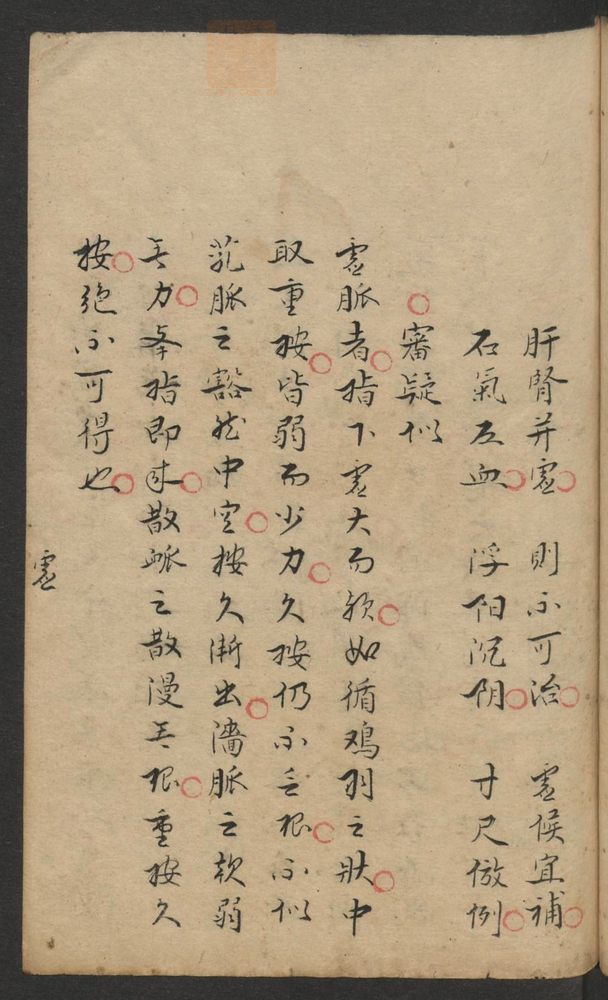 肝腎并虛 則不可治 虛候宜補
右氣左血 浮阳沉阴 寸尺倣例
審疑似
虛脈者指下虛大而软如循鸡羽之狀中
取重按皆弱而少力久按仍不乏根不似
芤脈之豁然中空按久漸出濇脈之软弱
无力举指即來散脈之散漫无根重按久
按绝不可得也
虛